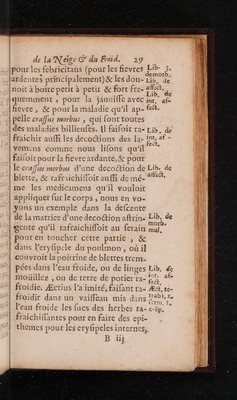 de la Neige & du Froid. 29
pour les febricitans (pour les fievres
ardentes principalement) & les don-
noit à boire petit à petit & fort fre-
quemment, pour la jaunisse avec
fievre, & pour la maladie qu'il ap-
pelle crassus morbus, qui sont toutes
des maladies billieuses. Il faisoit ra-
fraichir aussi les decoctions des la-
vemens comme nous lisons qu'il
faisoit pour la fievre ardente, & pour
le crassus morbus d'une decoction de
blette, & rafraichissoit aussi de mé-
me les medicamens qu'il vouloit
appliquer sur le corps, nous en vo-
yons un exemple dans la descente
de la matrice d'une decoction astrin-
gente qu'il rafraichissoit au serain
pour en toucher cette partie, &
dans l'erysipele du poulmon, où il
couvroit la poitrine de blettes trem-
pées dans l'eau froide, ou de linges
mouillez, ou de terre de potier ra-
froidie. Æctius l'a imité, faisant ra-
froidir dans un vaisseau mis dans
l'eau froide les sucs des herbes ra-
fraichissantes pour en faire des epi-
themes pour les erysipeles internes,
B iij
Lib. 3.
de morb.
Lib. de
affect.
Lib. de
int. af-
fect.
Lib. de
int. af-
fect.
Lib. de
affect.
Lib. de
morb.
mul.
Lib. de
int. af-
fect.
Æct. te-
trab. 2.